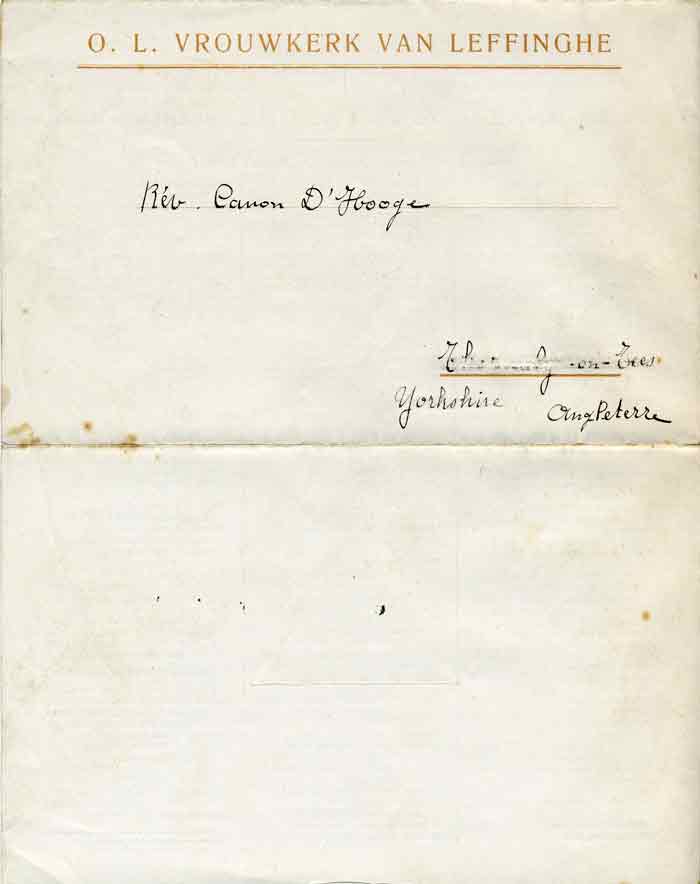 O. L. VROUWKERK VAN LEFFINGHE
Rév. Canon D'Hooge
-on-Tees
Yorkshire Angleterre